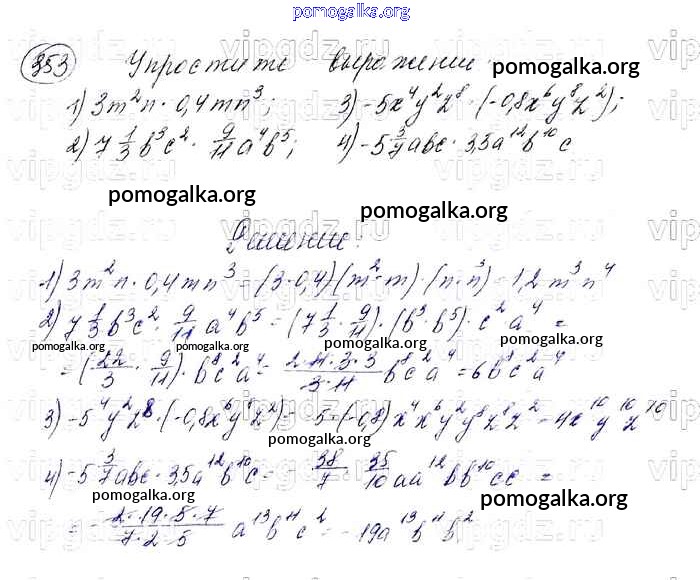 pomogalka.org
353 Упростите выражение.
pomogalka.org
1) 3m²n · 0,4mn³; 3) -5x⁴y²z⁸ · (-0,8x⁶y⁸z²);
2) 7 1/3 b³c² · 9/11 a⁴b⁵; 4) -5 3/7 abc · 3,5a¹²b¹⁰c
pomogalka.org
pomogalka.org
Решение:
1) 3m²n · 0,4mn³ = (3·0,4)(m²·m)·(n·n³) = 1,2m³n⁴
2) 7 1/3 b³c² · 9/11 a⁴b⁵ = (7 1/3 · 9/11)·(b³·b⁵)·c²a⁴ =
pomogalka.org pomogalka.org pomogalka.org
= (22/3 · 9/11)·b⁸c²a⁴ = 2·11·3·3/3·11 b⁸c²a⁴ = 6b⁸c²a⁴
3) -5⁴y²z⁸·(-0,8x⁶y⁸z²) = -5·(-0,8)x⁴x⁶y²y⁸z⁸z² = 4x¹⁰y¹⁰z¹⁰
pomogalka.org
4) -5 3/7 abc · 3,5a¹²b¹⁰c = -38/7 · 35/10 aa¹²bb¹⁰cc =
pomogalka.org
pomogalka.org
= -2·19·5·7/7·2·5 a¹³b¹¹c² = -19a¹³b¹¹b²